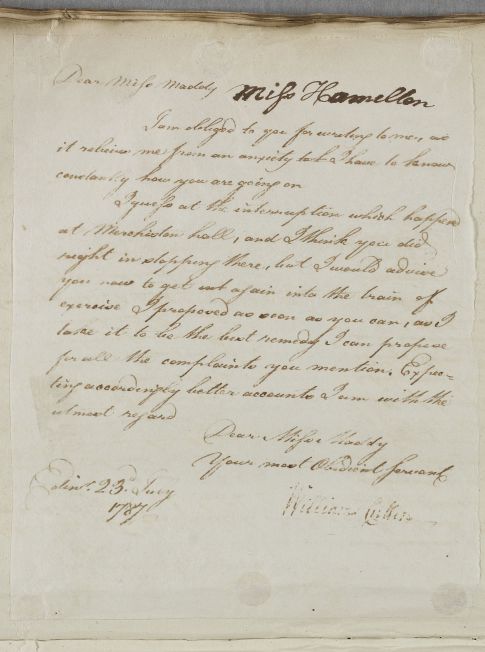 Dear Miss Maddy Miss Hamellon
I am obliged to you for writing to me, as
it relieves me from an anxiety that I have to know
constantly how you are going on
I guess at the interruption which happen
at Merchiston hall; and I think you did
right in stopping there, but I would advise
you now to get out again into the train of
exercise I proposed as soon as you can, as I
take it to be the best remedy I can propose
for all the complaints you mention. Expec-
ting accordingly better accounts I am with the
utmost regard
Dear Miss Maddy
Your most Obedient Servant
Edinr. 23d. July William Cullen
1787